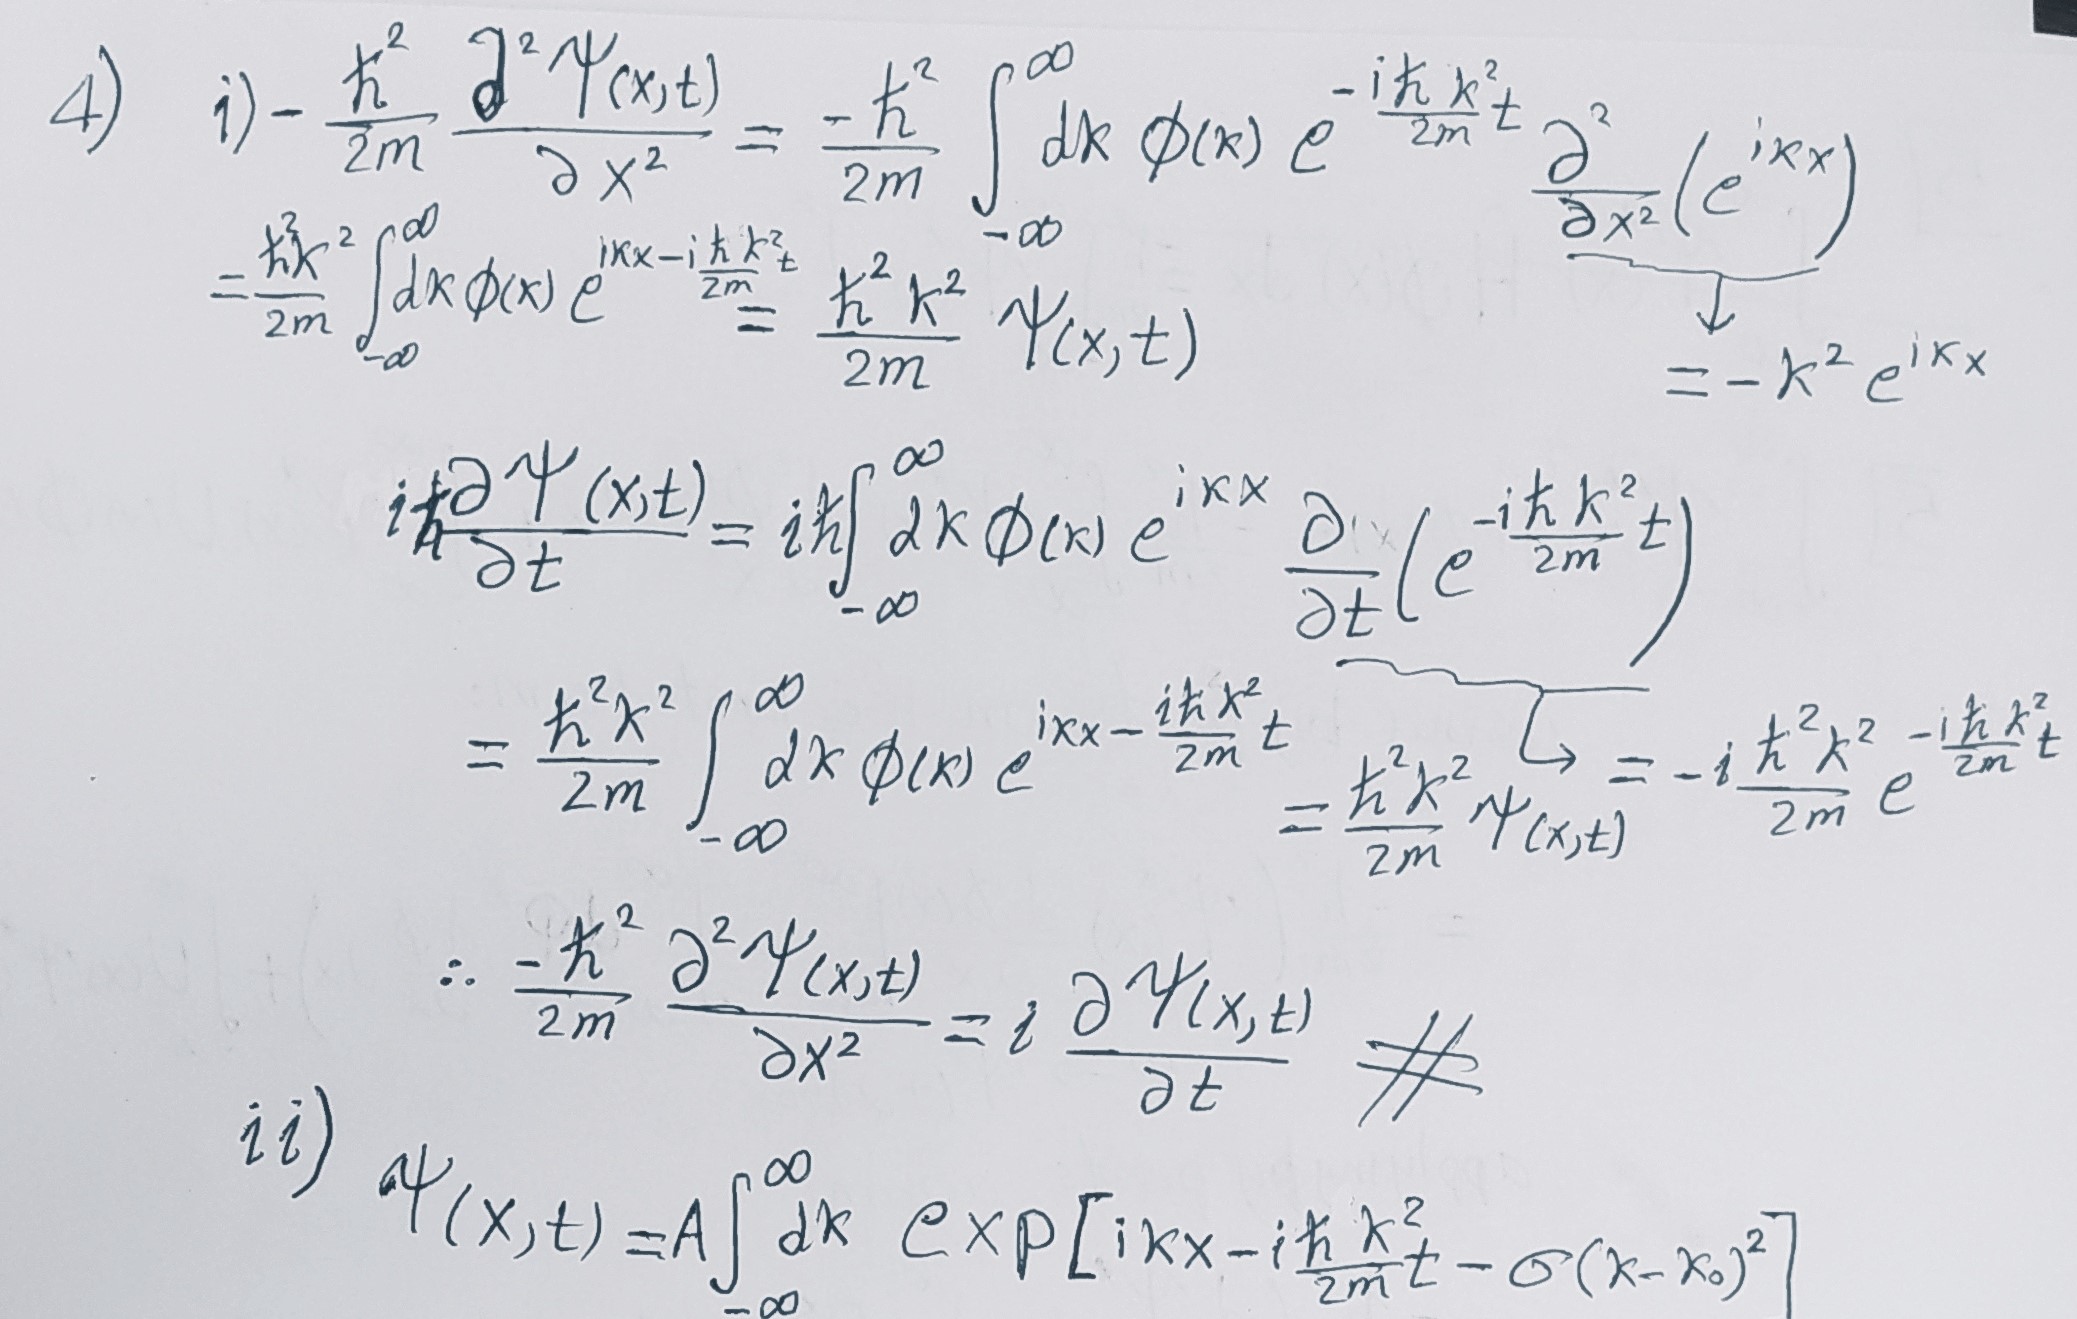 4) i) - ħ²/2m ∂²Ψ(x,t)/∂x² = -ħ²/2m ∫_{-∞}^{∞} dk ϕ(k) e^{-iħk²/2m t} ∂²/∂x² (e^{ikx})
= ħ²k²/2m ∫_{-∞}^{∞} dk ϕ(k) e^{ikx - iħk²/2m t} = ħ²k²/2m Ψ(x,t)
= -k² e^{ikx}
iħ ∂Ψ(x,t)/∂t = iħ ∫_{-∞}^{∞} dk ϕ(k) e^{ikx} ∂/∂t (e^{-iħk²/2m t})
= ħ²k²/2m ∫_{-∞}^{∞} dk ϕ(k) e^{ikx - iħk²/2m t} = ħ²k²/2m Ψ(x,t)
= -i ħ²k²/2m e^{-iħk²/2m t}
∴ -ħ²/2m ∂²Ψ(x,t)/∂x² = i ∂Ψ(x,t)/∂t #
ii) Ψ(x,t) = A ∫_{-∞}^{∞} dk exp[ikx - iħk²/2m t - σ(k-k₀)²]